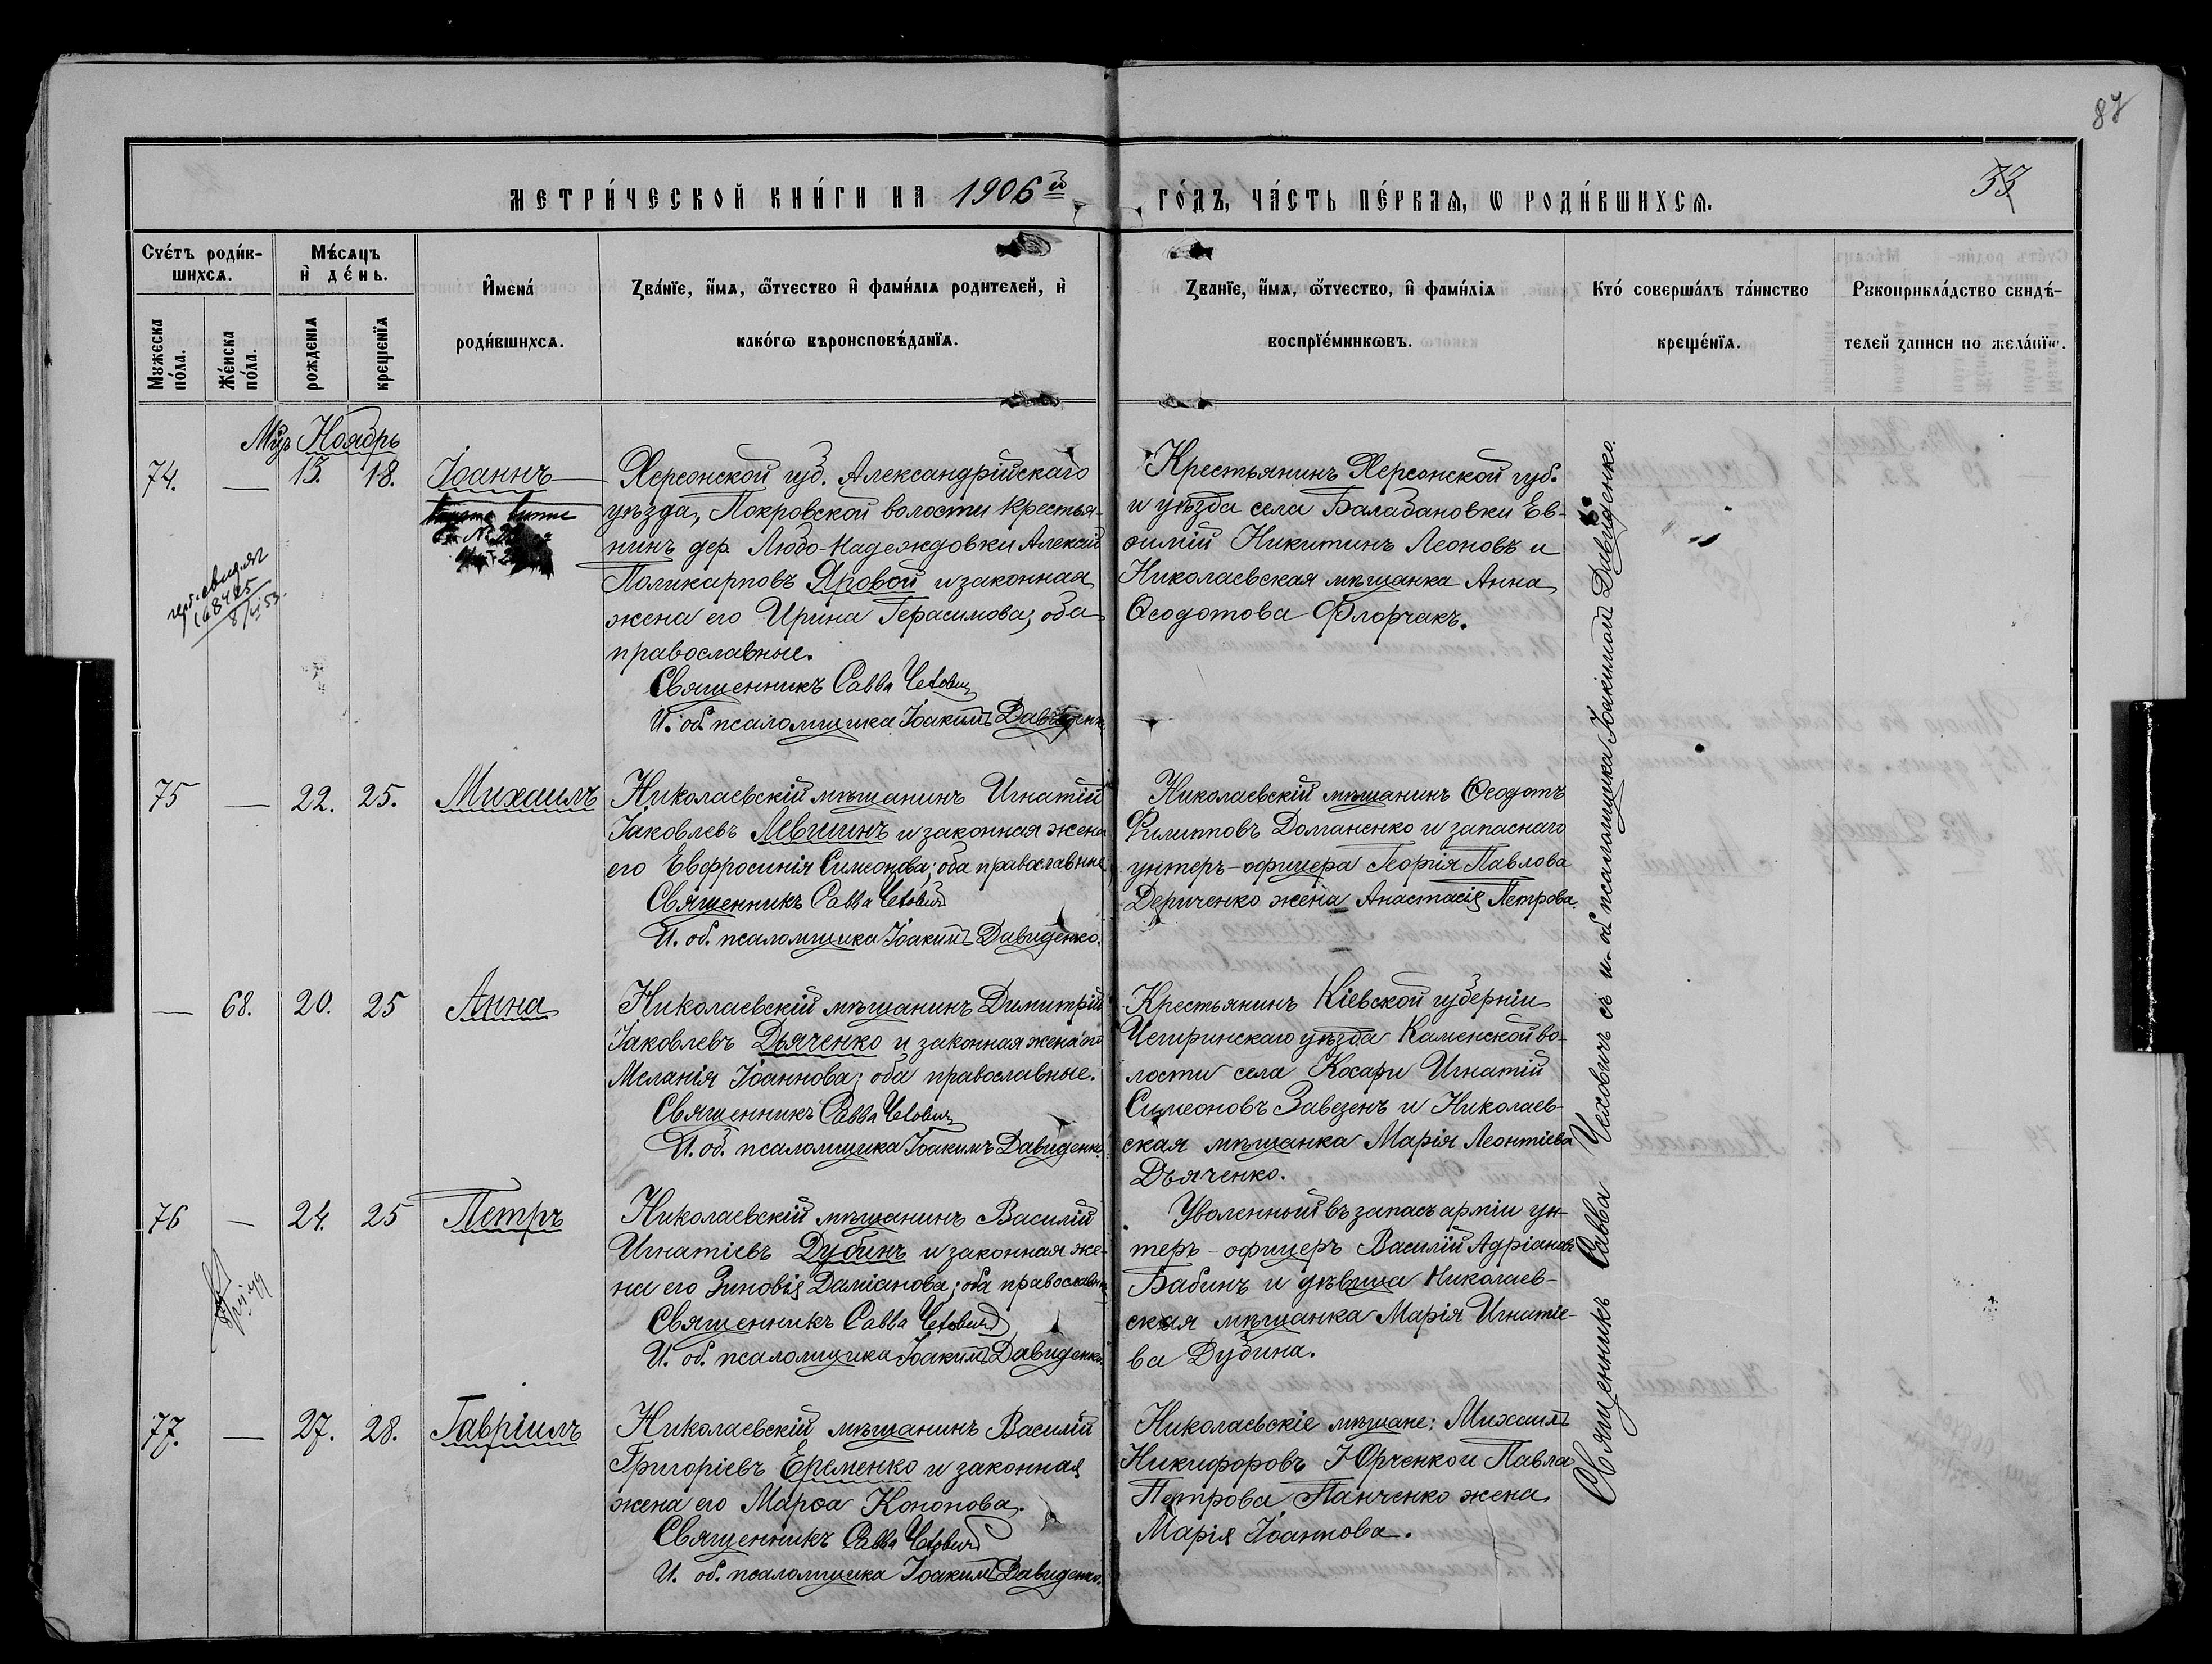 87
33
МЕТРИ́ЧЕСКОЙ КНИ́ГИ НА 1906й ГО́ДЪ, ЧА́СТЬ ПЕ́РВАЯ, Ѡ РОДИ́ВШИХСЯ.
Сче́тъ роди́в-
шихся.
Му́жеска по́ла.
Же́нска по́ла.
Мѣ́сяцъ
и҆ де́нь.
рожденія
крещенїя
И҆мена́
роди́вшихся.
Зва́нїе, и҆́мя, ѻ҆́тчество и҆ фами́лїя родителей, и҆
како́гѡ вѣроисповѣ́данїя.
Званїе, и҆́мя, ѻ҆́тчество, и҆ фами́лїя
воспрїе́мниковъ.
Кто́ соверша́лъ та́инство
креще́нїя.
Рукоприкла́дство свидѣ́-
телей записи по жела́нїю.
Мцъ Ноябрь
74. — 15. 18. Іоаннъ
Херсонской губ. Александрійскаго
уѣзда, Покровской волости крестья-
нинъ дер. Любо-Надеждовки Алексій
Поликарповъ Яровой и законная
жена его Ирина Герасимова; оба
православные.
Священникъ Савва Чехович
И. об. псаломщика Іоакимъ Давиденко
Крестьянинъ Херсонской губ.
и уѣзда села Балабановки Ев-
ѳимій Никитинъ Леоновъ и
Николаевская мѣщанка Анна
Ѳеодотова Флорчакъ.
75 — 22. 25. Михаилъ
Николаевскій мѣщанинъ Игнатій
Іаковлевъ Левшинъ и законная жена
его Евфросинія Симеонова; оба православные
Священникъ Савва Чехович
И. об. псаломщика Іоакимъ Давиденко.
Николаевскій мѣщанинъ Ѳеодотъ
Филипповъ Доманенко и запаснаго
унтеръ-офицера Георгія Павлова
Дериченко жена Анастасія Петрова.
— 68. 20. 25 Анна
Николаевскій мѣщанинъ Димитрій
Іаковлевъ Дьяченко и законная жена его
Меланія Іоаннова; оба православные.
Священникъ Савва Чехович
И. об. псаломщика Іоакимъ Давиденко.
Крестьянинъ Кіевской губерніи
Чегиринскаго уѣзда Каменской во-
лости села Косари Игнатій
Симеоновъ Завезенъ и Николаев-
ская мѣщанка Марія Леонтіева
Дьяченко.
76 — 24. 25 Петръ
Николаевскій мѣщанинъ Василій
Игнатіевъ Дубинъ и законная же-
на его Зиновія Даміанова; оба православные
Священникъ Савва Чехович
И. об. псаломщика Іоакимъ Давиденко.
Уволенный въ запасъ арміи ун-
теръ-офицеръ Василій Адріановъ
Бабинъ и дѣвица Николаев-
ская мѣщанка Марія Игнатіе-
ва Дубина.
77. — 27. 28. Гавріилъ
Николаевскій мѣщанинъ Василій
Григоріевъ Еременко и законная
жена его Марѳа Кононова.
Священникъ Савва Чехович
И. об. псаломщика Іоакимъ Давиденко.
Николаевскіе мѣщане: Михаилъ
Никифоровъ Юрченко и Павла
Петрова Панченко жена
Марія Іоаннова.
Священникъ Савва Чеховичъ съ и. об. псаломщика Іоакимом Давиденко.